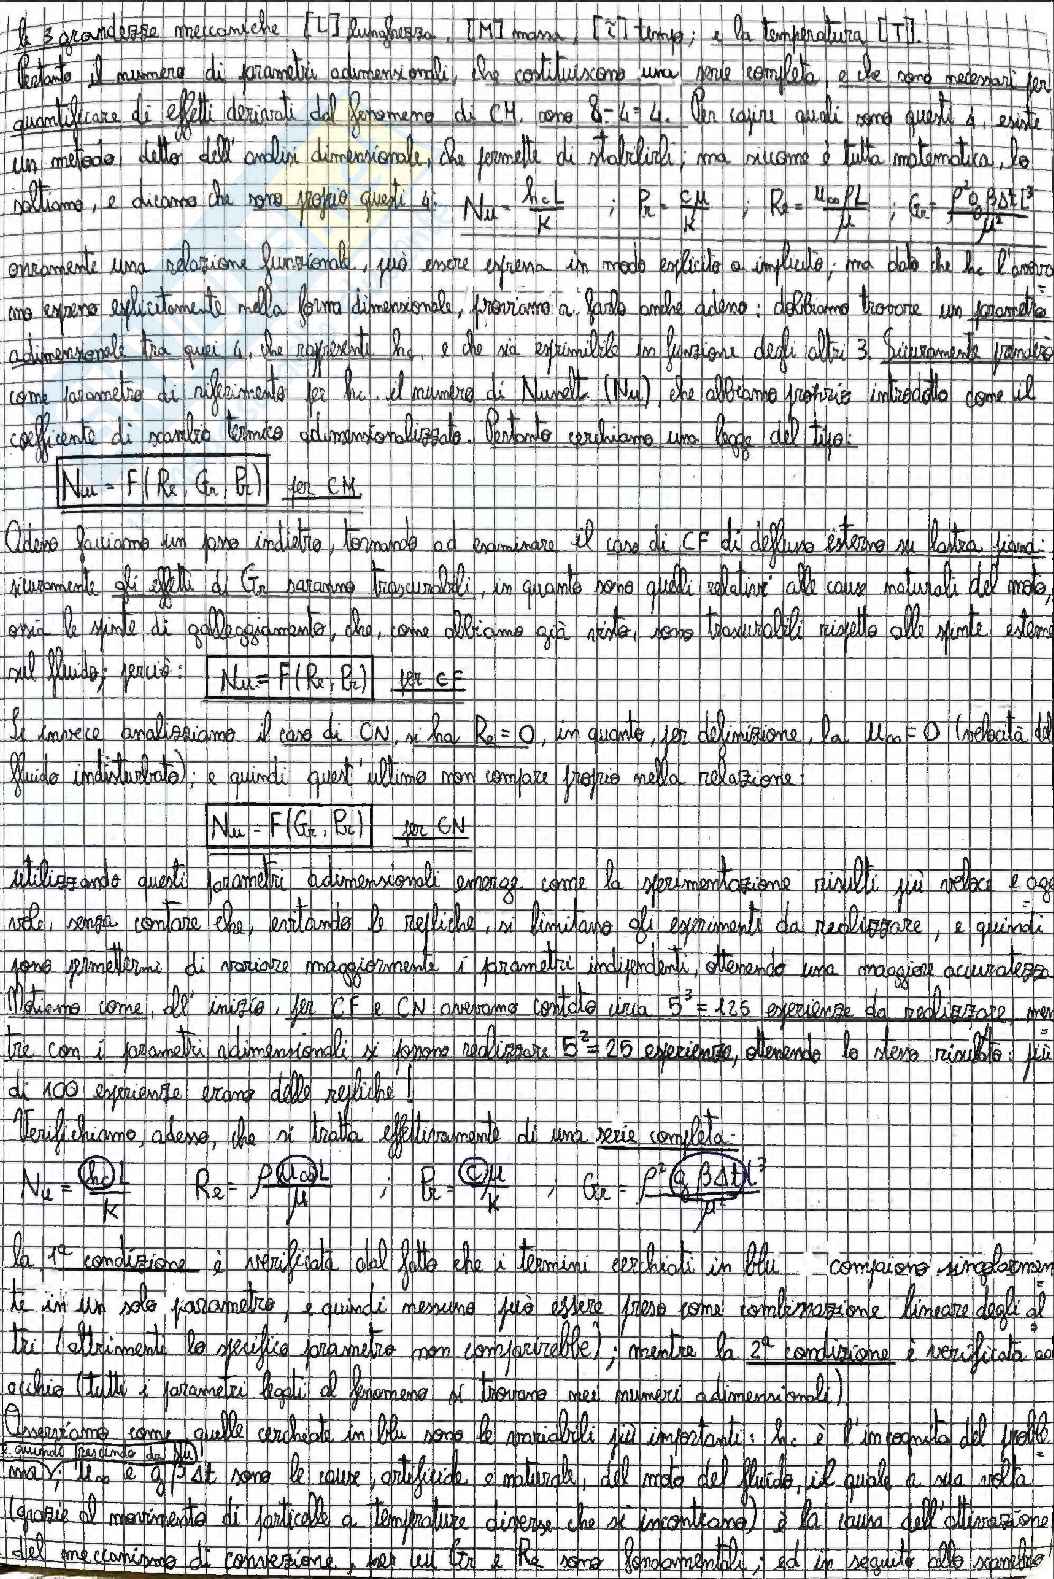 le 3 grandezze meccaniche [L] lunghezza, [M] massa, [τ] tempo; e la temperatura [T].
Pertanto il numero di parametri adimensionali, che costituiscono una serie completa, e che sono necessari per
quantificare di effetti derivati dal fenomeno di CM, sono 8-4=4. Per capire quali sono questi 4, esiste
un metodo, detto dell'analisi dimensionale, che permette di stabilirli; ma siccome è tutta matematica, lo
saltiamo, e diciamo che sono proprio questi 4: Nu = hc L / k ; Pr = cμ / k ; Re = u∞ρL / μ ; Gr = ρ²gβΔtL³ / μ²
ovviamente una relazione funzionale, può essere espressa in modo esplicito o implicito; ma dato che hc l'aveva=
mo espresso esplicitamente nella forma dimensionale, proviamo a farlo anche adesso: dobbiamo trovare un parametro
adimensionale tra quei 4, che rappresenti hc, e che sia esprimibile in funzione degli altri 3. Sicuramente prendere
come parametro di riferimento per hc il numero di Nusselt (Nu), che abbiamo proprio introdotto come il
coefficente di scambio termico adimensionalizzato. Pertanto cerchiamo una legge del tipo:
Nu = F(Re, Gr, Pr) per CM
Adesso facciamo un passo indietro, tornando ad esaminare il caso di CF di deflusso esterno su lastra piana:
sicuramente gli effetti di Gr saranno trascurabili, in quanto sono quelli relativi alle cause naturali del moto,
ossia le spinte di galleggiamento, che, come abbiamo già visto, sono trascurabili rispetto alle spinte esterne
sul fluido; perciò: Nu = F(Re, Pr) per CF
Se invece analizziamo il caso di CN, si ha Re = 0, in quanto, per definizione, la u∞ = 0 (velocità del
fluido indisturbato); e quindi quest'ultimo non compare proprio nella relazione:
Nu = F(Gr, Pr) per CN
utilizzando questi parametri adimensionali emerge come la sperimentazione risulti più veloce e age=
vole, senza contare che, evitando le repliche, si limitano gli esperimenti da realizzare, e quindi
posso permettermi di variare maggiormente i parametri indipendenti, ottenendo una maggiore accuratezza.
Notiamo come, all'inizio, per CF e CN avevamo contato circa 5³ = 125 esperienze da realizzare, men=
tre con i parametri adimensionali si possono realizzare 5² = 25 esperienze, ottenendo lo stesso risultato: più
di 100 esperienze erano delle repliche!
Verifichiamo, adesso, che si tratta effettivamente di una serie completa:
Nu = hc L / k Re = ρ u∞ L / μ ; Pr = c μ / k ; Gr = ρ² gβΔt L³ / μ²
la 1ª condizione è verificata dal fatto che i termini cerchiati in blu compaiono singolarmen=
te in un solo parametro, e quindi nessuno può essere preso come combinazione lineare degli al=
tri (altrimenti lo specifico parametro non comparirebbe); mentre la 2ª condizione è verificata ad
occhio (tutti i parametri legati al fenomeno si trovano nei numeri adimensionali)
Osserviamo come quelle cerchiate in blu sono le variabili più importanti: hc è l'incognita del proble=
e quindi prescindo da Nu!
ma; u∞ e gβΔt sono le cause, artificiale e naturale, del moto del fluido, il quale a sua volta
(grazie al movimento di particelle a temperature diverse che si incontrano) è la causa dell'attivazione
del meccanismo di convezione, per cui Gr e Re sono fondamentali; ed in seguito allo scambio